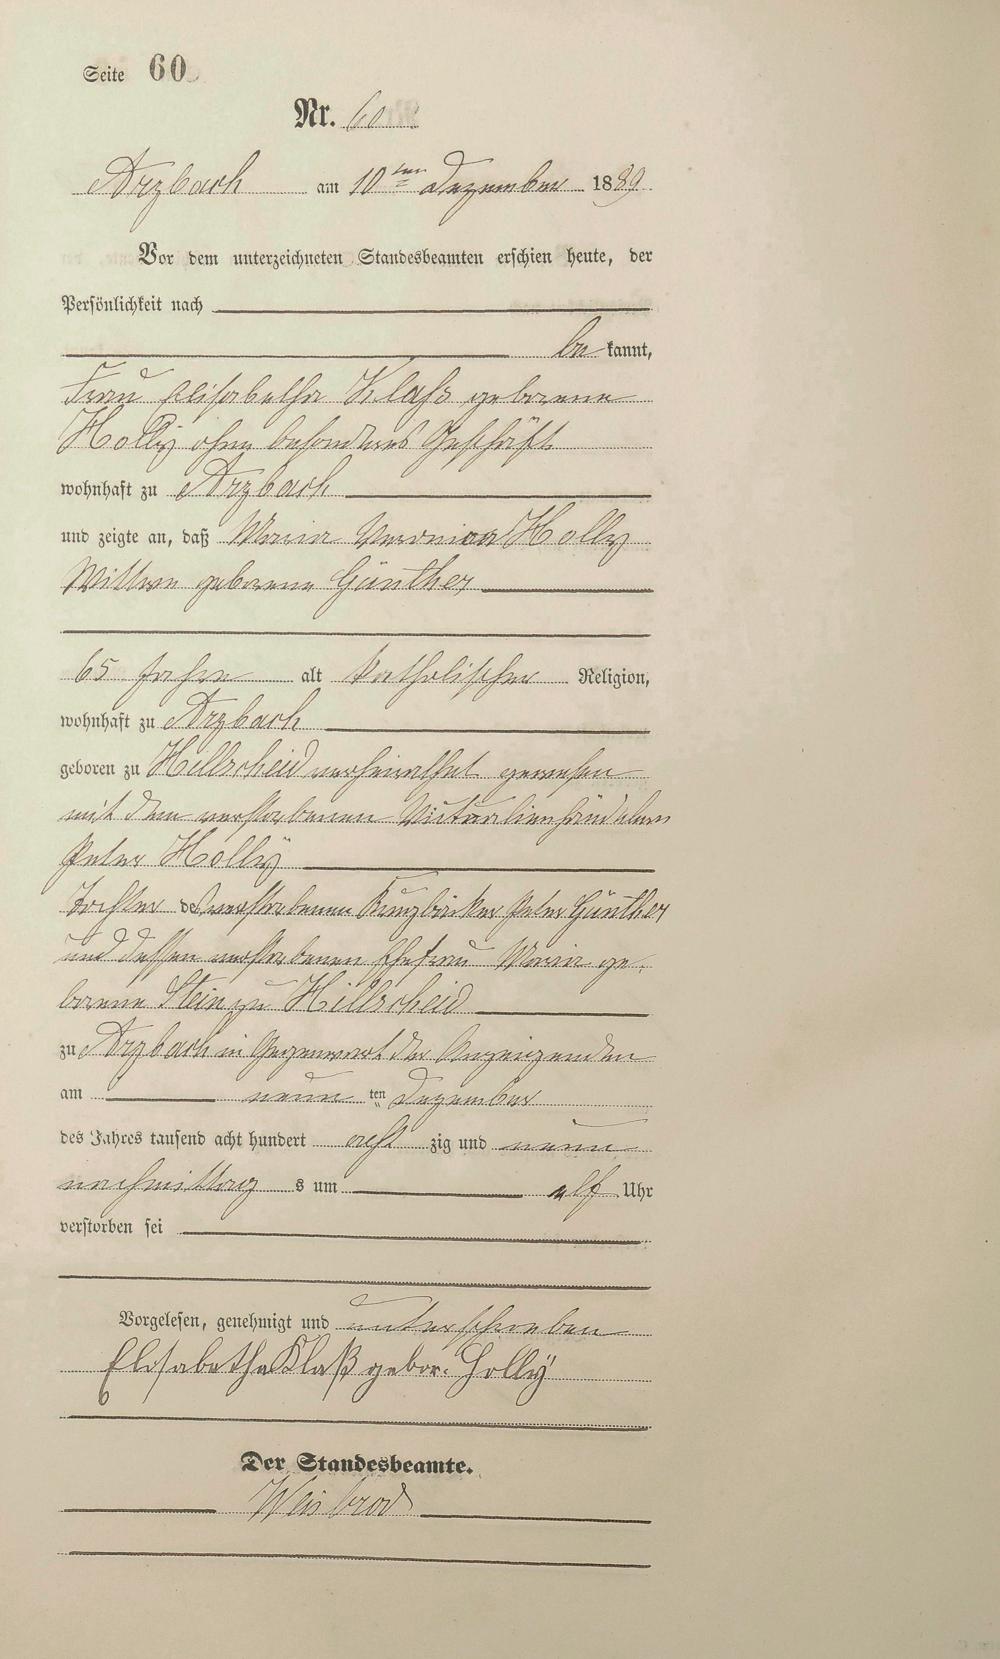 Seite 60
Nr. 60
Arzbach am 10ten Dezember 1889.
Vor dem unterzeichneten Standesbeamten erschien heute, der
Persönlichkeit nach
be kannt,
Frau Elisabetha Klaß geborene
Holly ohne besonderes Geschäft
wohnhaft zu Arzbach
und zeigte an, daß Maria Veronica Holly
Wittwe geborene Günther,
65 Jahre alt katholischer Religion,
wohnhaft zu Arzbach
geboren zu Hillscheid verheirathet gewesen
mit dem verstorbenen Victualienhändlern
Peter Holly
Tochter des verstorbenen Peter Günther
und dessen verstorbenen Ehefrau Maria ge-
borene Stein zu Hillscheid
zu Arzbach in Gegenwart der Anzeigenden
am neun ten Dezember
des Jahres tausend acht hundert acht zig und neun
nachmittag s um elf Uhr
verstorben sei
Vorgelesen, genehmigt und unterschrieben
Elisabetha Klaß gebor. Holly
Der Standesbeamte.
Weisbrod